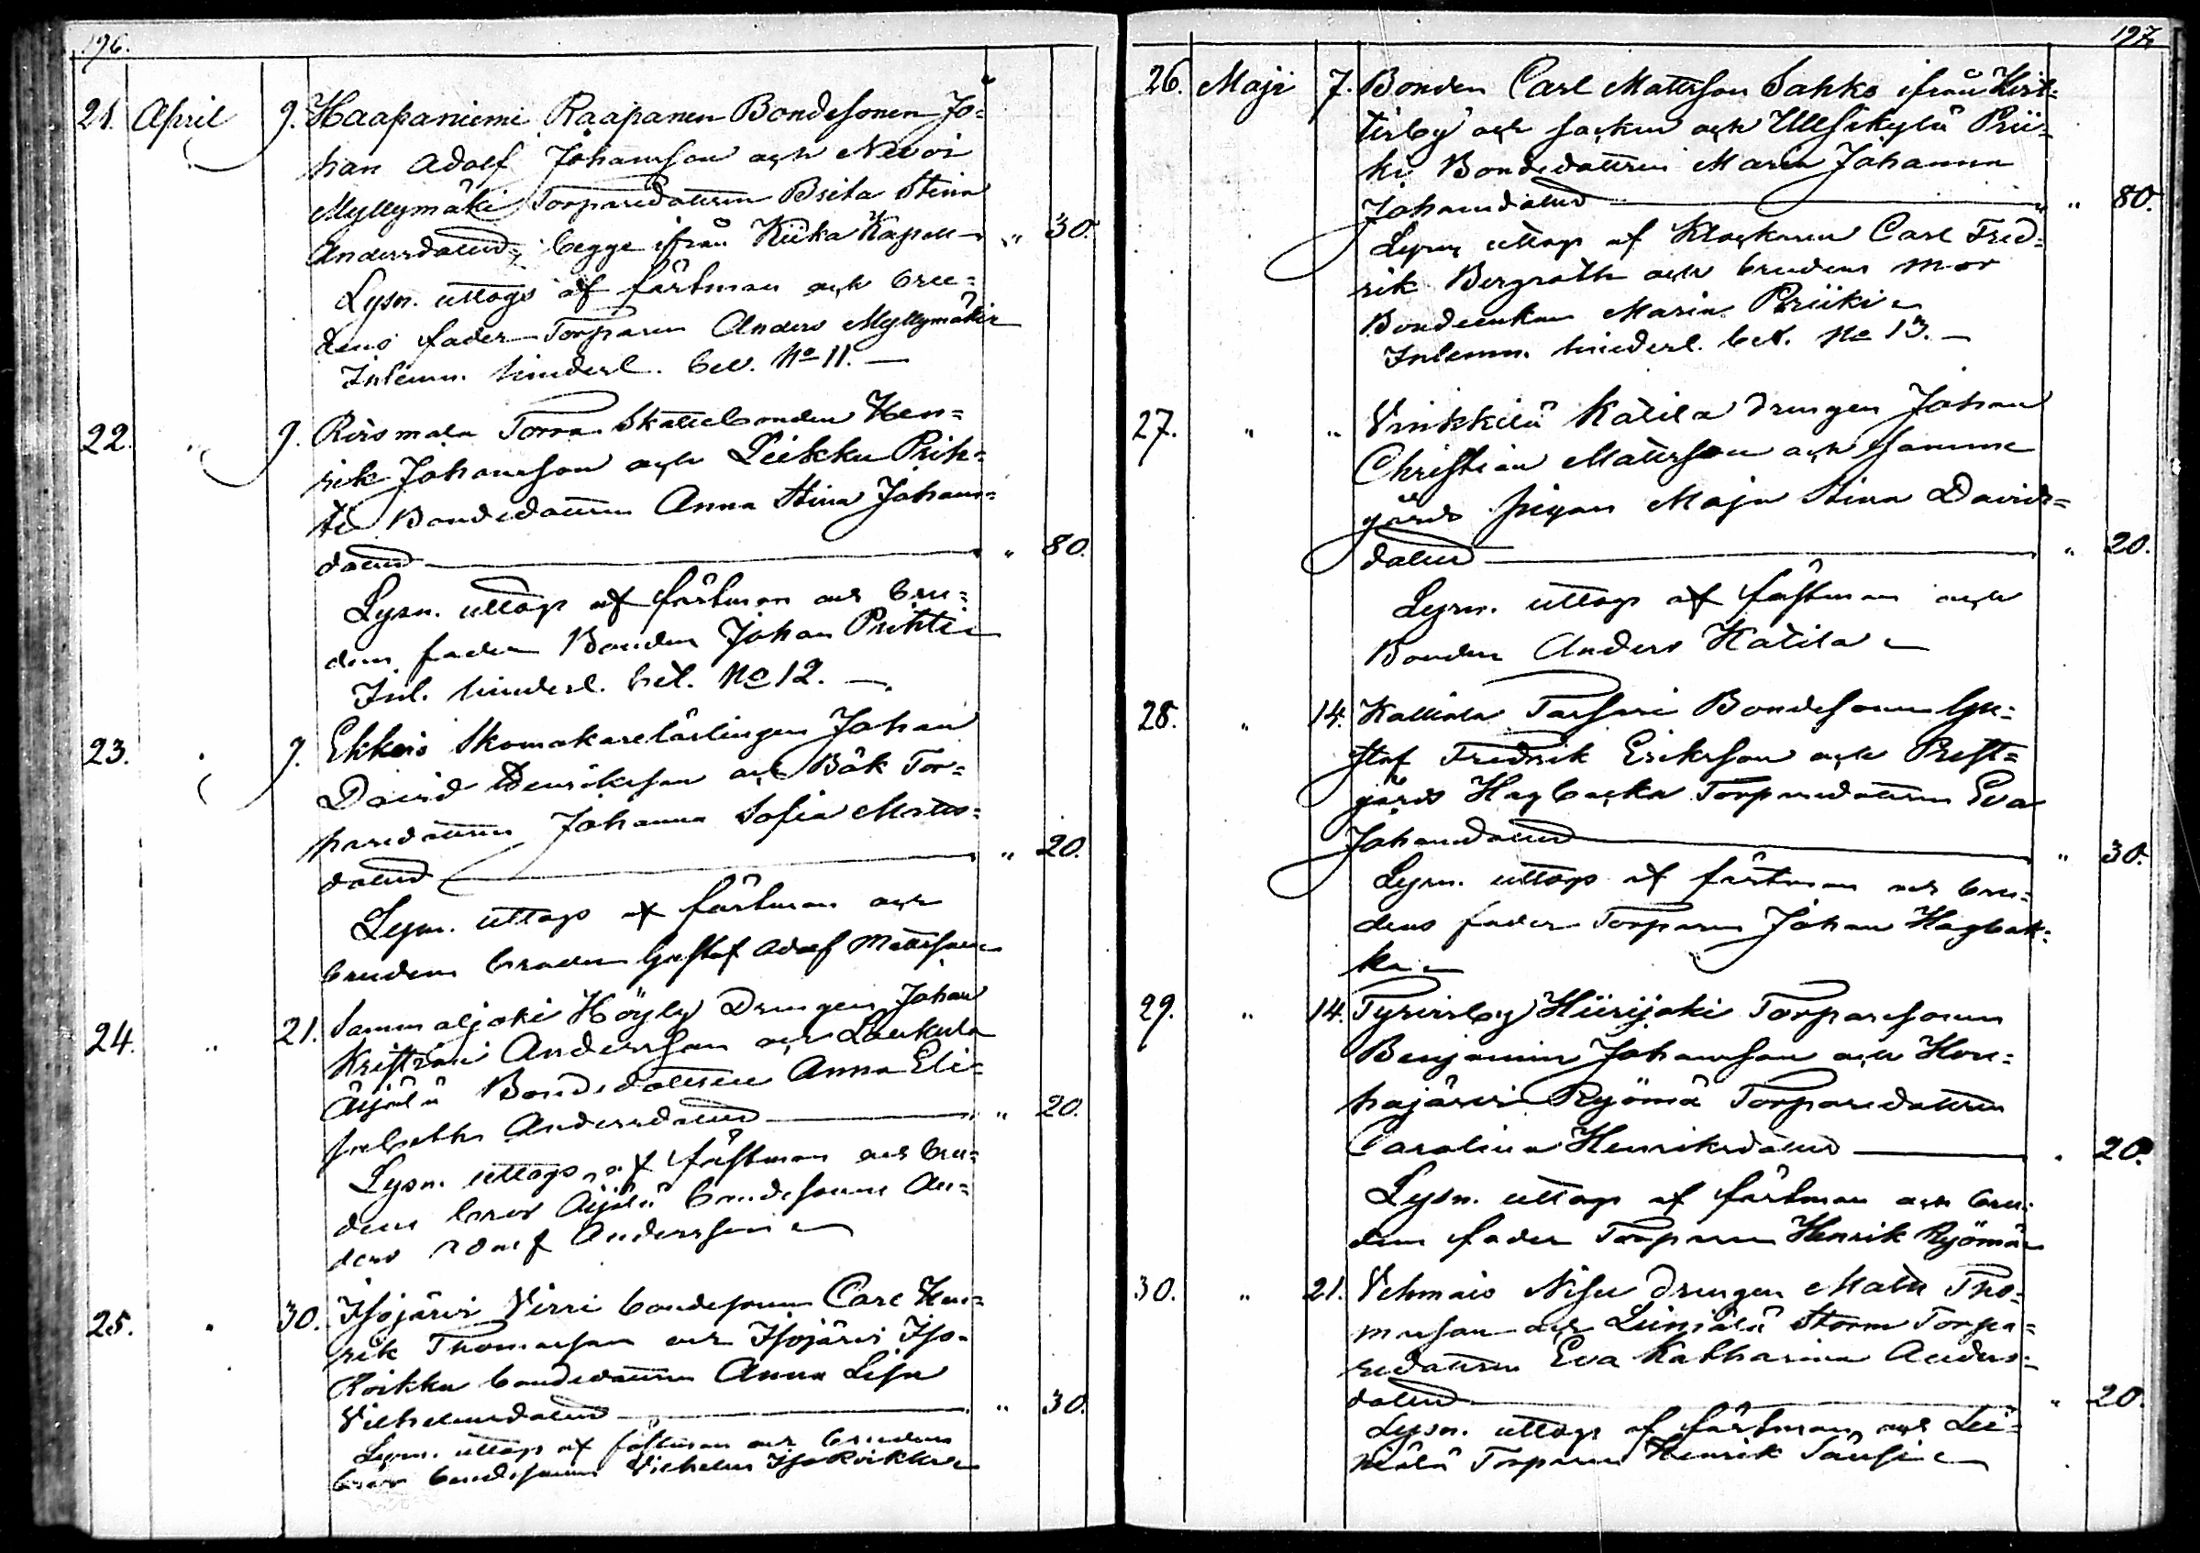 196.
21. April 9. Haapaniemi Raapanen Bondesonen Jo=
han Adolf Johansson och Nevoi
Myllymäki Torparedottren Brita Stina
Andersdotter, begge ifrån Kiika Kapell „ 30.
Lysn. uttogs af fästman och bru=
dens fader Torparen Anders Myllymäki
Inlemn. hinderl. bev. No 11. —
22. „ 9. Riismala Torra Skattebonden Hen=
rik Johansson och Liekku Prih=
ti Bondedottren Anna Stina Johans=
dotter „ 80.
Lysn. uttogs af fästman och bru=
dens fader Bonden Johan Prihti
Inl. hinderl. bet. No 12. —
23. „ 9. Ekkois Skomakarelärlingen Johan
David Henriksson och Bäk Tor=
paredottren Johanna Sofia Matts=
dotter „ 20.
Lysn. uttogs af fästman och
brudens broder Gustaf Adolf Mattsson
24. „ 21. Sammaljoki Höyly Drengen Johan
Kristian Andersson och Laukula
Äijälä Bondedottren Anna Eli=
sabeth Andersdotter „ 20.
Lysn. uttogs af fästman och bru=
dens bror Äijälä bondesonen An=
ders Adolf Andersson
25. „ 30. Isojärvi Virri bondesonen Carl Hen=
rik Thomasson och Isojärvi Iso-
Roikka bondedottren Anna Lisa
Vilhelmsdotter „ 30.
Lysn. uttogs af fästman och brudens
bror bondesonen Vilhelm Iso Roikka
197.
26. Maji 7. Bonden Carl Mattsson Sahko ifrån
och socken och Prii=
ki Bondedottren Maria Johanna
Johansdotter „ 80.
Lysn. uttogs af Klockaren Carl Fred=
rik Bergroth och brudens mor
Bondeenkan Maria Priiki
Inlemn. hinderl. bet. No 13. —
27. „ „ Vinkkilä Katila drengen Johan
Christian Mattsson och samma
gårds pigan Maja Stina Davids=
dotter „ 20.
Lysn. uttogs af fästman och
Bonden Anders Katila
28. „ 14. Kalliala Bondesonen Gu=
staf Fredrik Eriksson och Prest=
gårds Hagbacka Torparedottren Eva
Johansdotter „ 30.
Lysn. uttogs af fästman och bru=
dens fader Torparen Johan Hagbak=
ka
29. „ 14. Tyrvisby Hiirijoki Torparesonen
Benjamin Johansson och Hou=
hajärvi Ryömä Torparedottren
Carolina Henriksdotter „ 20.
Lysn. uttogs af fästman och bru=
dens fader Torparen Henrik Ryömä
30. „ 21. Vehmais Nisu drengen Matts Tho=
masson och Liiniälä Storm Torpa=
redottren Eva Katharina Anders=
dotter „ 20.
Lysn. uttogs af fästman och Lii=
niälä Torparen Henrik